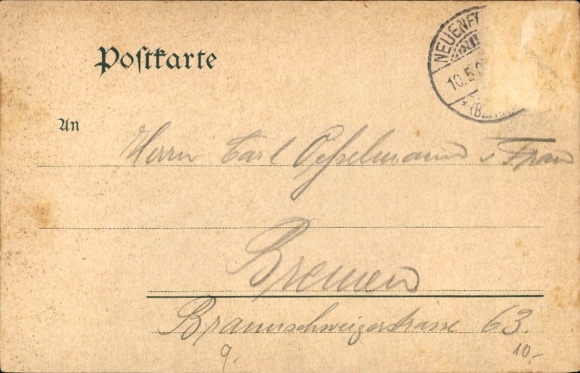 Postkarte
NEUENF
10.5.
*(B
An
Herrn Carl Opselmann u Frau
Bremen
Braunschweigerstrasse 63.
9,
10,-